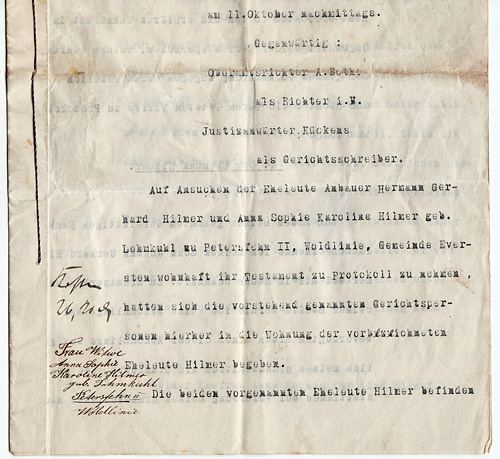 am 11.Oktober nachmittags.
Gegenwärtig :
Oberamtsrichter A.Bothe
als Richter i.V.
Justizanwärter Kückens
als Gerichtsschreiber.
Auf Ansuchen der Eheleute Anbauer Hermann Ger-
hard Hilmer und Anna Sophie Karoline Hilmer geb.
Lehmkuhl zu Petersfehn II, Woldlinie, Gemeinde Ever-
sten wohnhaft ihr Testament zu Protokoll zu nehmen ,
hatten sich die vorstehend genannten Gerichtsper-
sonen hierher in die Wohnung der vorbezeichneten
Eheleute Hilmer begeben.
Die beiden vorgenannten Eheleute Hilmer befinden
Frau Witwe
Anna Sophie
Karoline Hilmer
geb. Lehmkuhl
Petersfehn II
Woldlinie